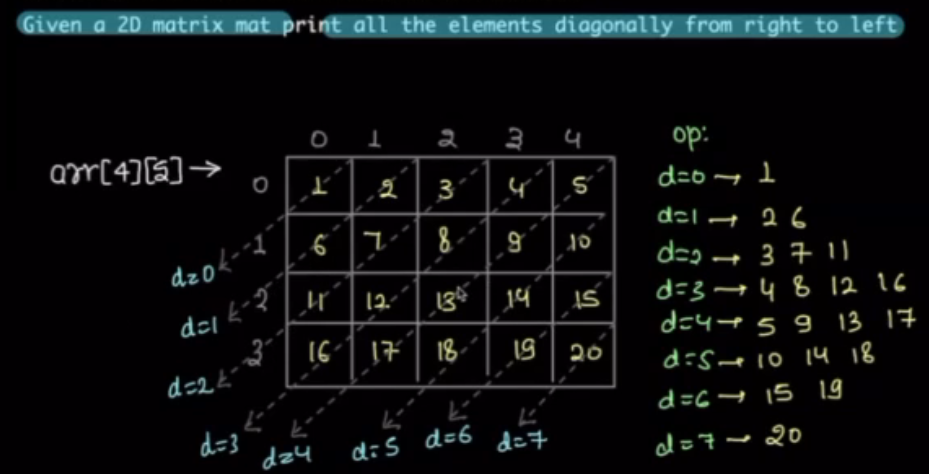 Given a 2D matrix mat print all the elements diagonally from right to left
0 1 2 3 4
arr[4][5] →
0 1 2 3 4 5
1 6 7 8 9 10
2 11 12 13 14 15
3 16 17 18 19 20
d=0
d=1
d=2
d=3 d=4 d=5 d=6 d=7
op:
d=0 → 1
d=1 → 2 6
d=2 → 3 7 11
d=3 → 4 8 12 16
d=4 → 5 9 13 17
d=5 → 10 14 18
d=6 → 15 19
d=7 → 20